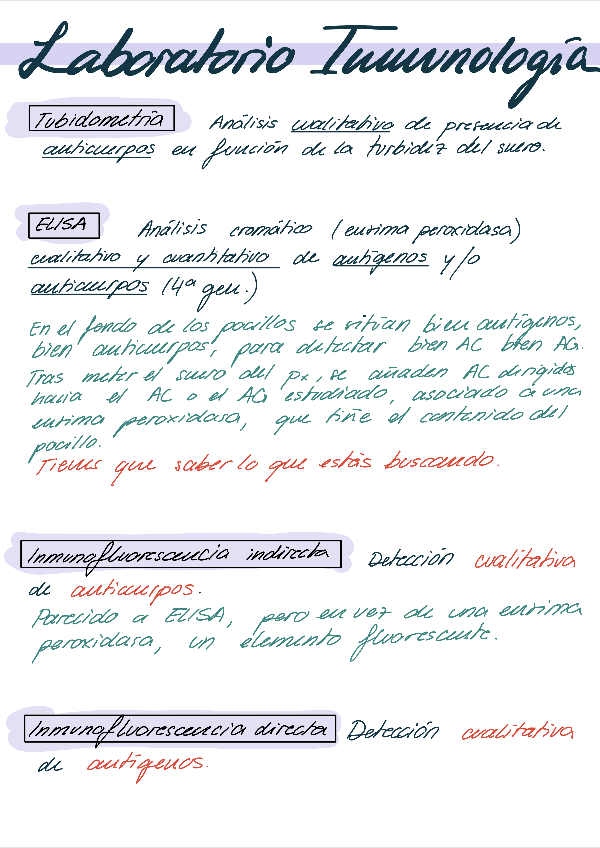 Laboratorio Inmunología
Tubidometría Análisis cualitativo de presencia de
anticuerpos en función de la turbidez del suero.
ELISA Análisis cromático (enzima peroxidasa)
cualitativo y cuantitativo de antígenos y/o
anticuerpos (4ª gen.)
En el fondo de los pocillos se sitúan bien antígenos,
bien anticuerpos, para detectar bien AC bien AG.
Tras meter el suero del px, se añaden AC dirigidos
hacia el AC o el AG estudiado, asociado a una
enzima peroxidasa, que tiñe el contenido del
pocillo.
Tienes que saber lo que estás buscando.
Inmunofluorescencia indirecta Detección cualitativa
de anticuerpos.
Parecido a ELISA, pero en vez de una enzima
peroxidasa, un elemento fluorescente.
Inmunofluorescencia directa Detección cualitativa
de antígenos.